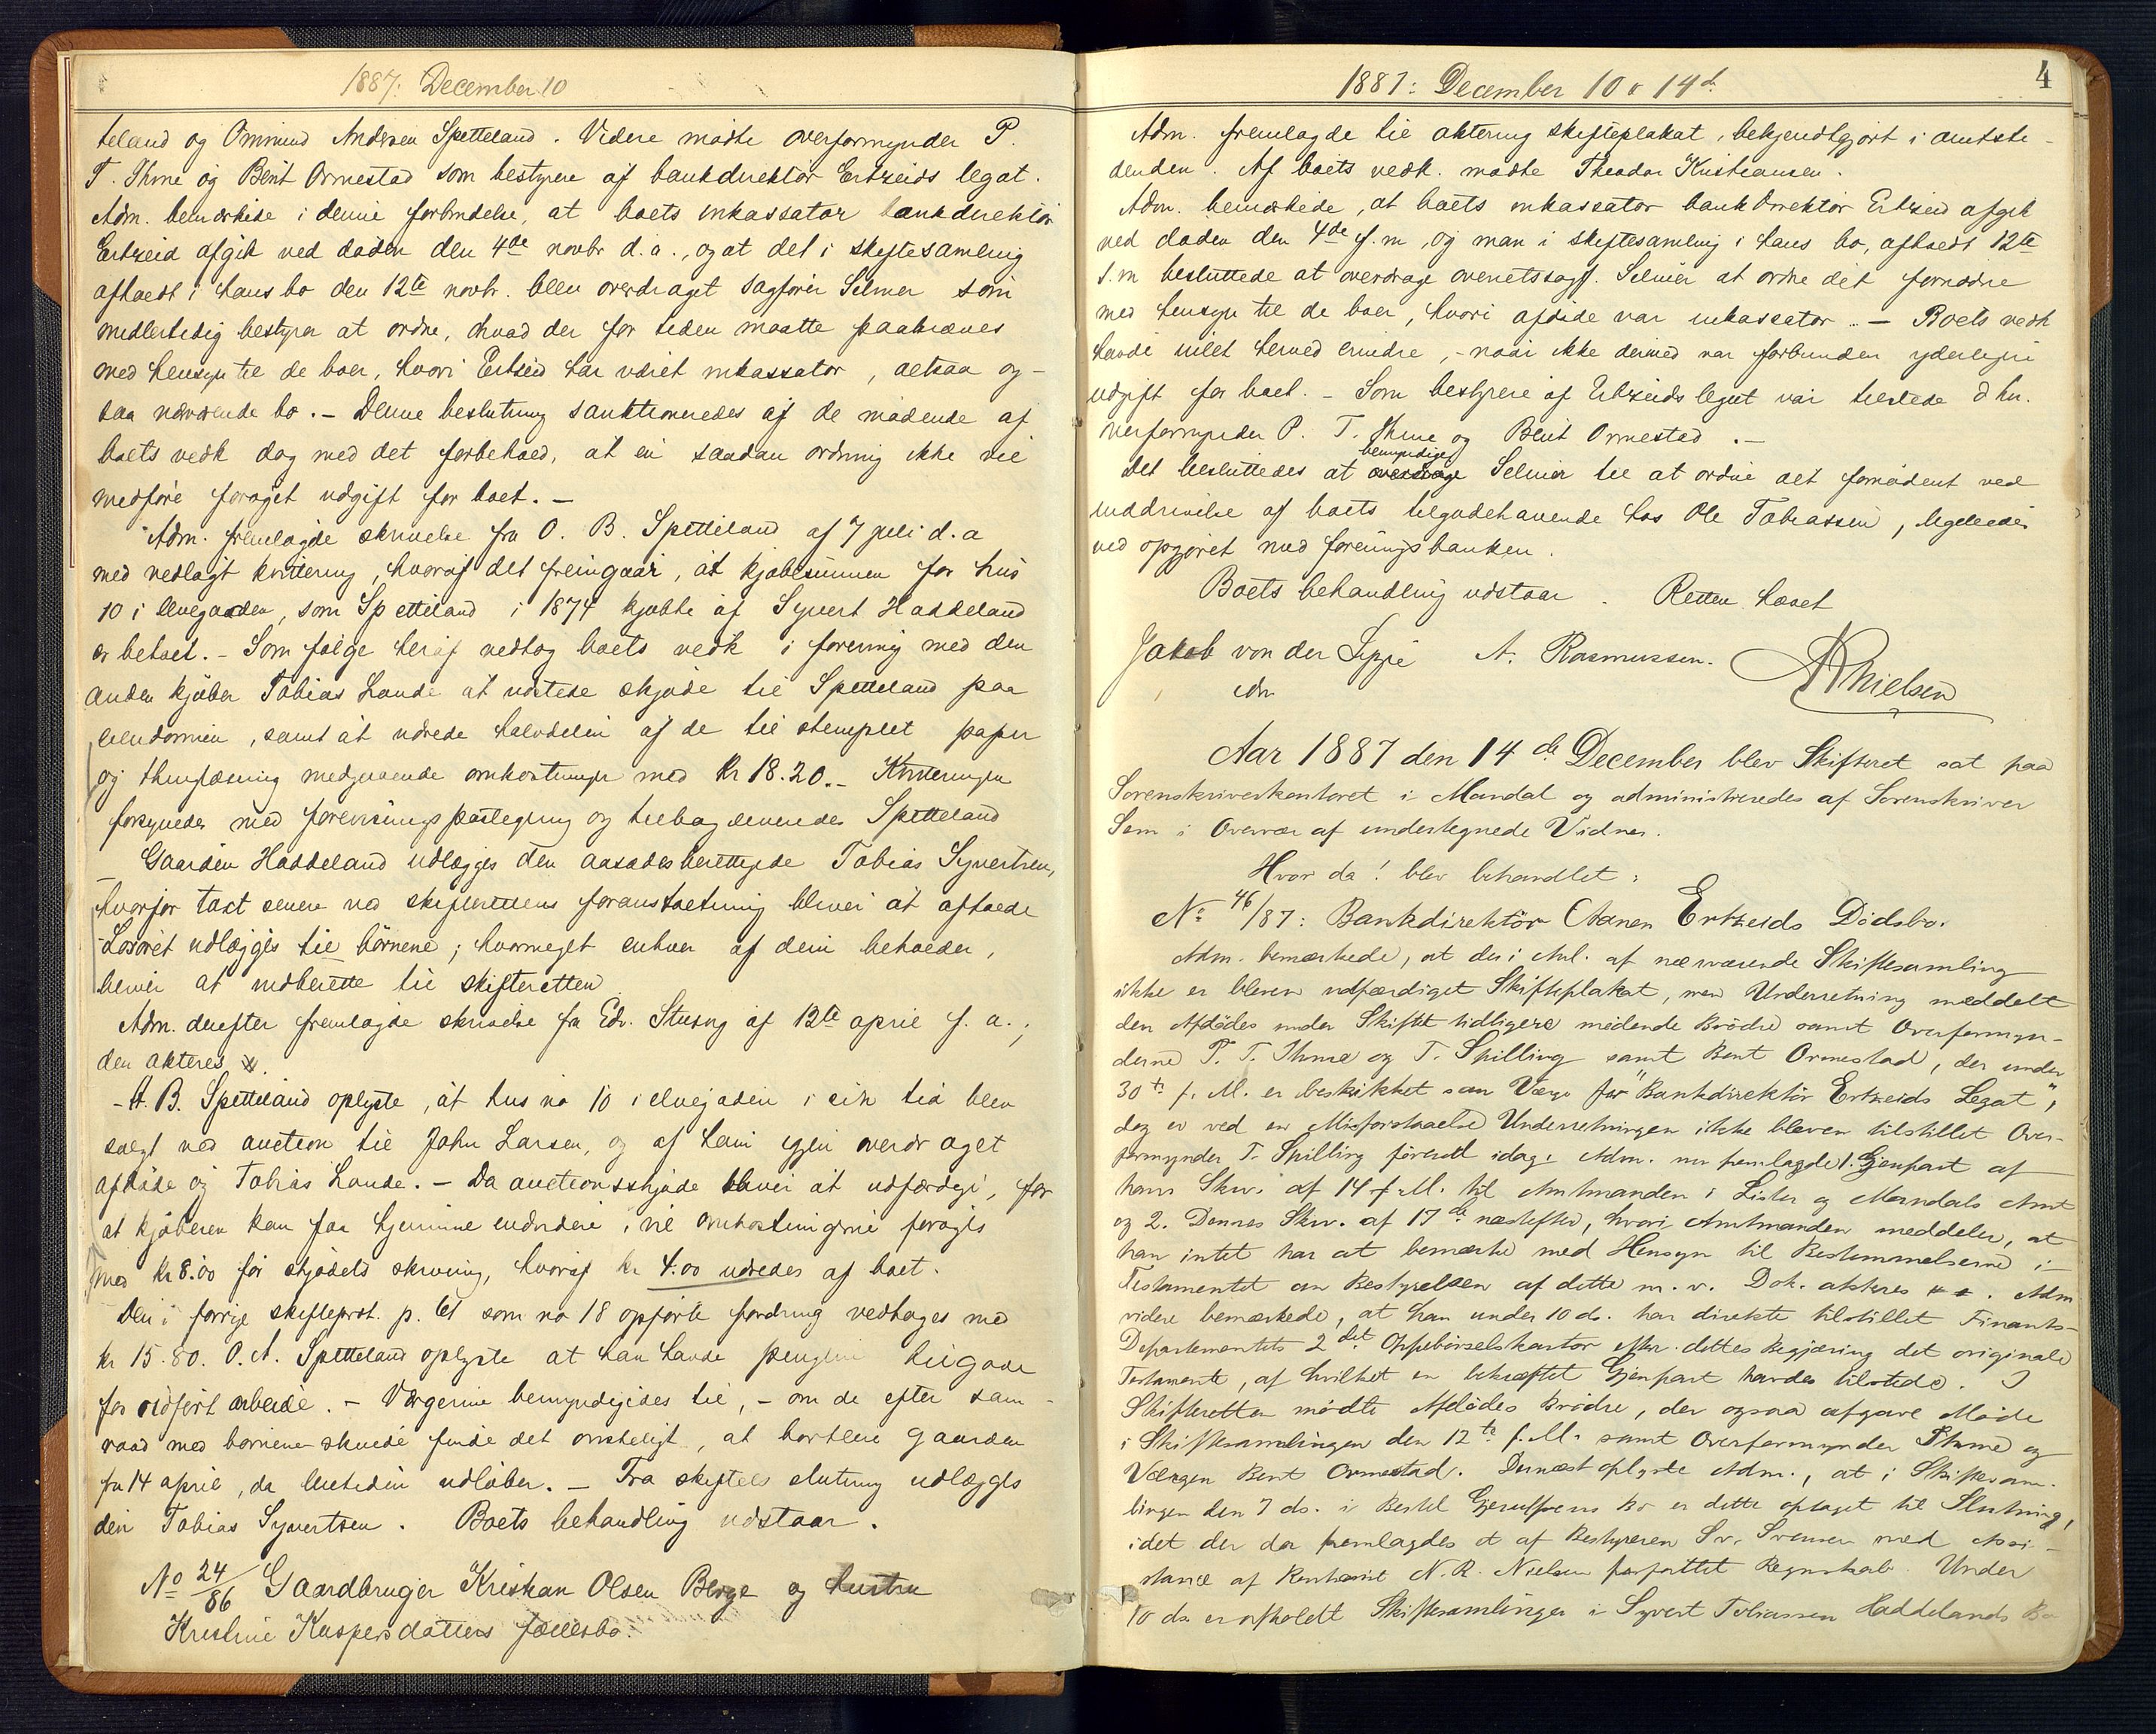 1887: December 10
teland og Ommund Andersen Spetteland. Videre mødte overformynder P.
T. Ihme og Bent Ormestad som bestyrere af bankdirektør Ertzeids legat.
Adm. bemærkede i denne forbindelse, at boets inkassator bankdirektør
Ertzeid afgik ved døden den 4de novbr d.a., og at det i skiftesamling
afholdt i hans bo den 12te novbr. blev overdraget sagfører Selmer som
midlertidig bestyrer at ordne, hvad der for tiden maatte paakræves
med hensyn til de boer, hvori Ertzeid har været inkassator, altsaa og-
saa nærværende bo. – Denne beslutning sanktioneredes af de mødende af
boets vedk dog med det forbehold, at en saadan ordning ikke vil
medføre forøget udgift for boet. –
Adm. fremlagde skrivelse fra O. B. Spetteland af 7 juli d.a
med vedlagt kvittering, hvoraf det fremgaar, at kjøbesummen for hus
10 i elvegaden, som Spetteland i 1874 kjøbte af Syvert Haddeland
er betalt. – Som følge heraf vedtog boets vedk i forening med den
anden kjøber Tobias Lande at udstede skjøde til Spetteland paa
eiendommen, samt at udrede halvdelen af de til stemplet papir
og thinglæsning medgaaende omkostninger med kr 18.20. – Kvitteringen
forsynedes med forevisningspaategning og tilbageleveredes Spetteland
Gaarden Haddeland udlægges den aasædesberettigede Tobias Syvertsen,
hvorfor taxt senere ved skifterettens foranstaltning bliver at afholde
Løsøret udlægges til børnene; hvormeget enhver af dem beholder,
bliver at indberette til skifteretten
Adm. derefter fremlagde skrivelse fra Edv. Stusvig af 12te april f.a.;
den akteres
– A. B. Spetteland oplyste, at hus no 10 i elvegaden i sin tid blev
solgt ved auction til John Larsen, og af ham igjen overdraget
afdøde og Tobias Lande. – Da auctionsskjøde bliver at udfærdige, for
at kjøberen kan faa hjemmel endvidere, vil omkostningerne forøges
med kr 8.00 for skjødets skrivning, hvoraf kr 4.00 udredes af boet.
Den i forrige skifteprot. p. 61 som no 18 opførte fordring vedtages med
kr 15.80. O. A. Spetteland oplyste at han havde pengene tilgode
for udført arbeide. – Værgerne bemyndigedes til, – om de efter sam-
raad med børnene skulde finde det ønskeligt, at bortleie gaarden
fra 14 april, da leietiden udløber. – Fra skiftets slutning udlægges
den Tobias Syvertsen. Boets behandling udstaar.
No 24/86 Gaardbruger Kristian Olsen Berge og hustru
Kristine Kaspersdatters fællesbo.
1887: December 10 & 14d.
4
Adm. fremlagde til aktering skifteplakat, bekjendtgjort i amtsti-
denden. Af boets vedk. mødte Theodor Kristiansen.
Adm. bemærkede, at boets inkassator bankdirektør Ertzeid afgik
ved døden den 4de f.m, og man i skiftesamling i hans bo, afholdt 12te
s.m besluttede at overdrage overretssagf. Selmer at ordne det fornødne
med hensyn til de boer, hvori afdøde var inkassator. – Boets vedk
havde intet herved erindre, – naar ikke dermed var forbunden yderligere
udgift for boet. – Som bestyrere af Ertzeids legat var tilstede d hr.
overformynder P. T. Ihme og Bent Ormestad. –
Det besluttedes at overdrage bemyndige Selmer til at ordne det fornødent ved
inddrivelse af boets tilgodehavende hos Ole Tobiassen, ligeledes
ved opgjøret med foreningsbanken.
Boets behandling udstaar. Retten hævet
Jakob von der Lippe A. Rasmussen. Nielsen
cdn
Aar 1887 den 14de December blev Skifteret sat paa
Sorenskriverkontoret i Mandal og administreredes af Sorenskriver
Sem i Overvær af undertegnede Vidner.
Hvor da! blev behandlet:
No 46/87: Bankdirektör Aanen Ertzeids Dödsbo.
Adm. bemærkede, at der i Anl. af nærværende Skiftesamling
ikke er bleven udfærdiget Skifteplakat, men Underretning meddelt
den Afdödes under Skiftet tidligere mödende Brödre samt Overformyn-
derne P. T. Ihme og T. Spilling samt Bent Ormestad, der under
30te f. M. er beskikket som Værge for "Bankdirektör Ertzeids Legat",
dog er ved en Misforstaaelse Underretningen ikke bleven tilstillet Over-
formynder T. Spilling förend idag. Adm. nu fremlagde 1. Gjenpart af
hans Skriv. af 14 f. M. til Amtmanden i Lister og Mandals Amt
og 2. Dennes Skriv. af 17de næstefter, hvori Amtmanden meddeler, at
han intet har at bemærke med Hensyn til Bestemmelserne i
Testamentet om Bestyrelsen af dette m. v. Dok. akteres. Adm
videre bemærkede, at han under 10 ds. har direkte tilstillet Finants-
Departementets 2det Oppebörselskontor efter dettes Begjæring det originale
Testamente, af hvilket en bekræftet Gjenpart havdes tilstede. I
Skifteretten mödte Afdödes Brödre, der ogsaa afgave Möde
i Skiftesamlingen den 12te f. M. samt Overformynder Ihme og
Værgen Bent Ormestad. Dernæst oplyste Adm., at i Skiftesam-
lingen den 7 ds. i Bertel Gjerulfsens Bo er dette optaget til Slutning,
idet der da fremlagdes et af Bestyreren Sv. Svensen med Assi-
stance af Kontorist N. R. Nielsen forfattet Regnskab. Under
10 ds. er afholdt Skiftesamlinger i Syvert Tobiassen Haddelands Bo